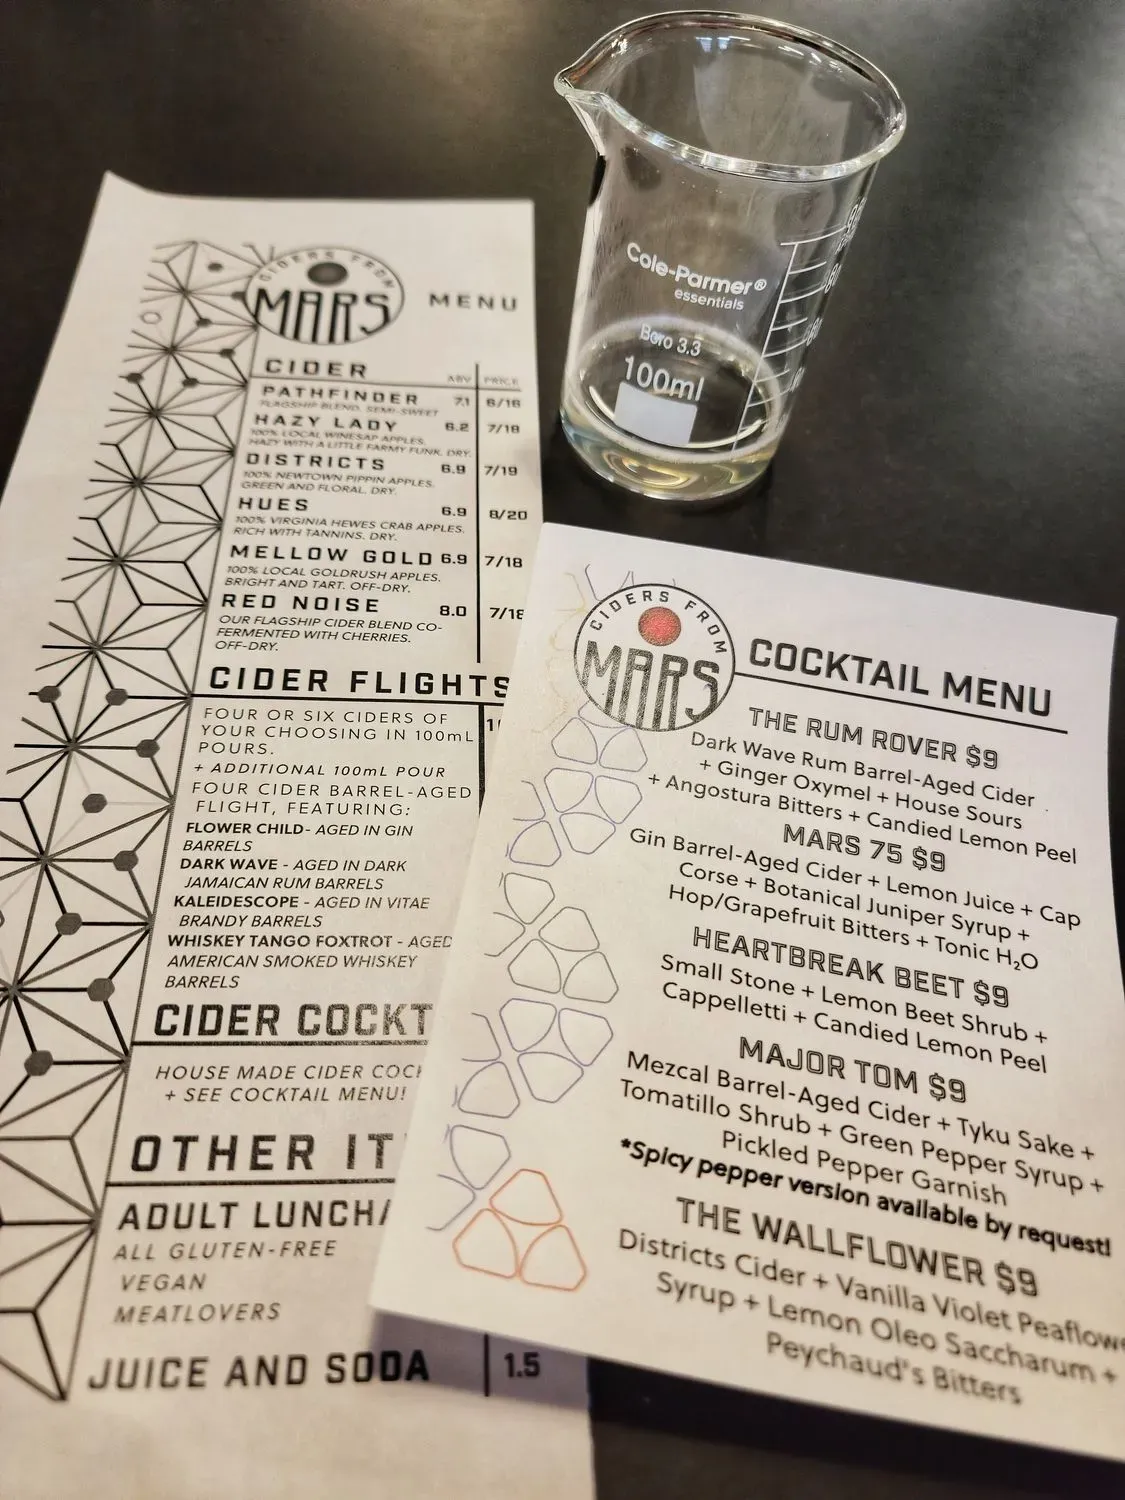 Cole-Parmer®
essentials
Boro 3.3
100ml
80
60
CIDERS FROM
MARS
MENU
CIDER
ABV PRICE
PATHFINDER 7.1 6/16
FLAGSHIP BLEND. SEMI-SWEET
HAZY LADY 6.2 7/18
100% LOCAL WINESAP APPLES.
HAZY WITH A LITTLE FARMY FUNK. DRY.
DISTRICTS 6.9 7/19
100% NEWTOWN PIPPIN APPLES.
GREEN AND FLORAL. DRY.
HUES 6.9 8/20
100% VIRGINIA HEWES CRAB APPLES.
RICH WITH TANNINS. DRY.
MELLOW GOLD 6.9 7/18
100% LOCAL GOLDRUSH APPLES.
BRIGHT AND TART. OFF-DRY.
RED NOISE 8.0 7/18
OUR FLAGSHIP CIDER BLEND CO-
FERMENTED WITH CHERRIES.
OFF-DRY.
CIDER FLIGHTS
FOUR OR SIX CIDERS OF
YOUR CHOOSING IN 100mL
POURS.
+ ADDITIONAL 100mL POUR
FOUR CIDER BARREL-AGED
FLIGHT, FEATURING:
FLOWER CHILD- AGED IN GIN
BARRELS
DARK WAVE - AGED IN DARK
JAMAICAN RUM BARRELS
KALEIDESCOPE - AGED IN VITAE
BRANDY BARRELS
WHISKEY TANGO FOXTROT - AGED
AMERICAN SMOKED WHISKEY
BARRELS
CIDER COCKT
HOUSE MADE CIDER COC
+ SEE COCKTAIL MENU!
OTHER IT
ADULT LUNCHA
ALL GLUTEN-FREE
VEGAN
MEATLOVERS
JUICE AND SODA 1.5
CIDERS FROM
MARS
COCKTAIL MENU
THE RUM ROVER $9
Dark Wave Rum Barrel-Aged Cider
+ Ginger Oxymel + House Sours
+ Angostura Bitters + Candied Lemon Peel
MARS 75 $9
Gin Barrel-Aged Cider + Lemon Juice + Cap
Corse + Botanical Juniper Syrup +
Hop/Grapefruit Bitters + Tonic H₂O
HEARTBREAK BEET $9
Small Stone + Lemon Beet Shrub +
Cappelletti + Candied Lemon Peel
MAJOR TOM $9
Mezcal Barrel-Aged Cider + Tyku Sake +
Tomatillo Shrub + Green Pepper Syrup +
Pickled Pepper Garnish
*Spicy pepper version available by request!
THE WALLFLOWER $9
Districts Cider + Vanilla Violet Peaflowe
Syrup + Lemon Oleo Saccharum +
Peychaud's Bitters